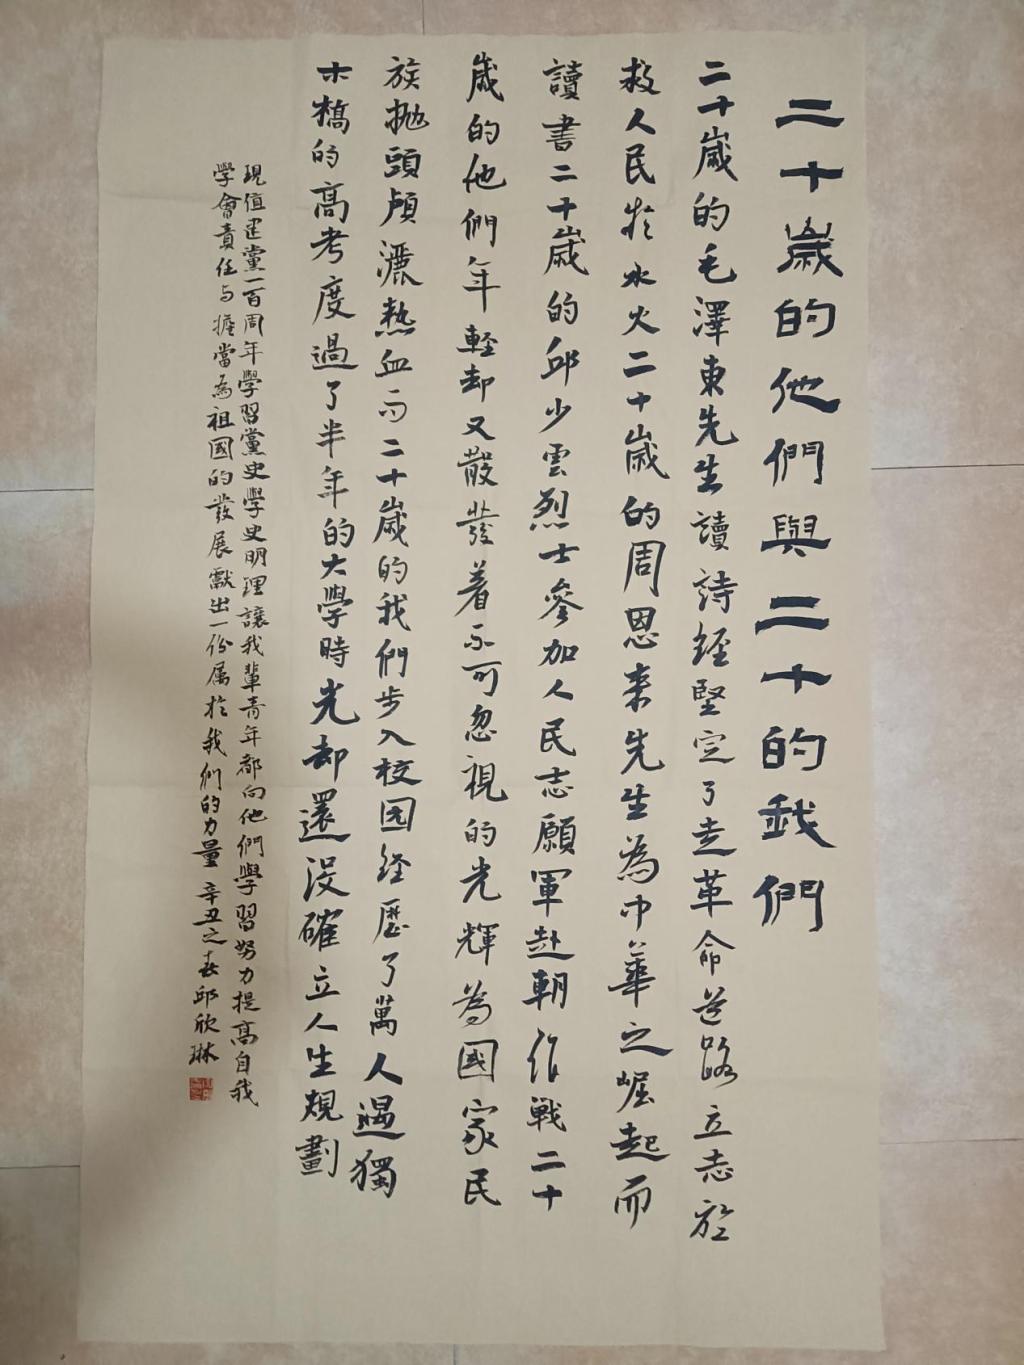 二十歲的他們與二十的我們
二十歲的毛澤東先生讀詩經堅定了走革命道路立志於
救人民於水火二十歲的周恩来先生為中華之崛起而
讀書二十歲的邱少雲烈士參加人民志願軍赴朝作戰二十
歲的他們年輕却又散發着不可忽視的光輝為國家民
族拋頭顱灑熱血而二十歲的我們步入校园经歷了萬人過獨
木橋的高考度過了半年的大學時光却還沒確立人生規劃
現值建黨一百周年學習黨史學史明理讓我輩青年都向他們學習努力提高自我
學會責任与擔當為祖國的發展獻出一份属於我們的力量 辛丑之春邱欣琳